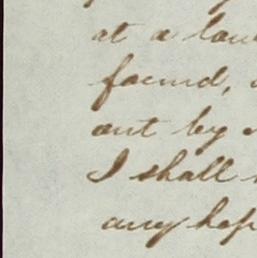 at a
found,
out by
I shall
any